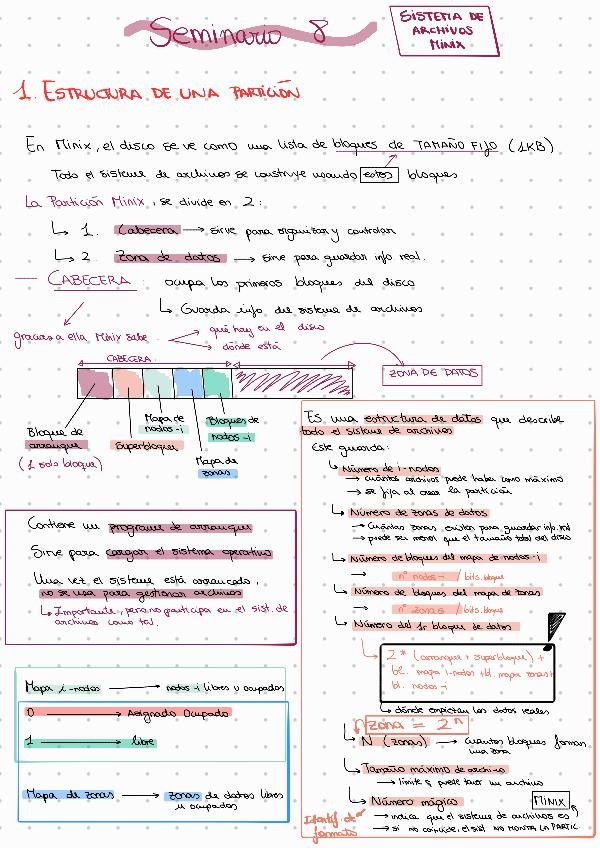 Seminario 8
SISTEMA DE
ARCHIVOS
MINIX
1. ESTRUCTURA DE UNA PARTICIÓN
En Minix, el disco se ve como una lista de bloques de TAMAÑO FIJO (1KB)
Todo el sistema de archivos se construye usando estos bloques
La Partición Minix, se divide en 2:
1. Cabecera → sirve para organizar y controlar
2 Zona de datos → sirve para guardar info real.
— CABECERA: ocupa los primeros bloques del disco
Guarda info del sistema de archivos
gracias a ella Minix sabe
qué hay en el disco
dónde está
CABECERA
ZONA DE DATOS
Bloque de
arranque
(1 solo bloque)
Superbloque
Mapa de
nodos-i
Mapa de
zonas
Bloques de
nodos-i
Contiene un programa de arranque
Sirve para cargar el sistema operativo
Una vez el sistema está arrancado,
no se usa para gestionar archivos
Importante, pero no participa en el sist. de
archivos como tal.
Mapa i-nodos → nodos-i libres u ocupados
0 → Asignado Ocupado
1 → libre
Mapa de zonas → zonas de datos libres
u ocupados
Es una estructura de datos que describe
todo el sistema de archivos
Este guarda:
Número de i-nodos
→ cuántos archivos puede haber como máximo
→ se fija al crear la partición
Número de zonas de datos
→ Cuántas zonas existen para guardar info real
→ puede ser menor que el tamaño total del disco
Número de bloques del mapa de nodos-i
→ nº nodos-i / bits.bloque
Número de bloques del mapa de zonas
→ nº zonas / bits.bloque
Número del 1er bloque de datos
2 * (arranque + superbloque) +
bl. mapa i-nodos + bl. mapa zonas +
bl. nodos-i
dónde empiezan los datos reales
zona = 2ⁿ
N (zonas) → cuántos bloques forman
una zona
Tamaño máximo de archivo
→ límite q puede tener un archivo
Número mágico
MINIX
Identif. de
formato
→ indica que el sistema de archivos es
→ si no coincide, el sist NO MONTA LA PARTIC.